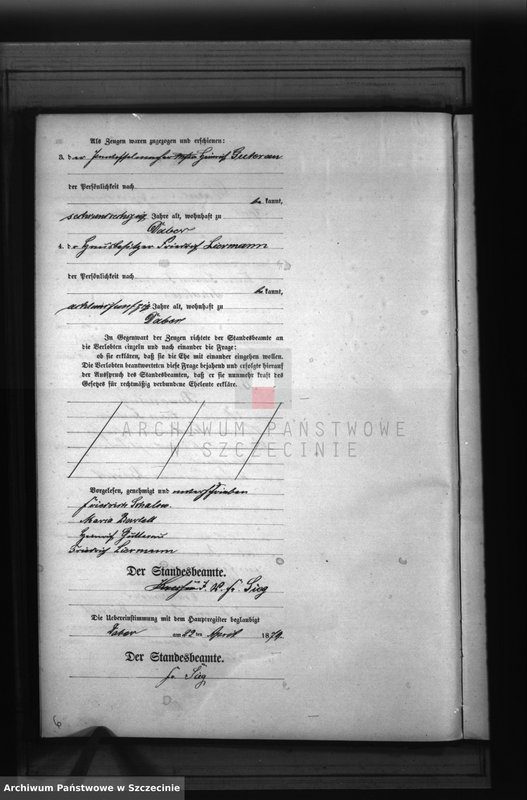 Als Zeugen waren zugezogen und erschienen:
3. der Heinrich
der Persönlichkeit nach
be kannt,
Jahre alt, wohnhaft zu
Daber
4. der Friedrich Liermann
der Persönlichkeit nach
be kannt,
Jahre alt, wohnhaft zu
Daber
In Gegenwart der Zeugen richtete der Standesbeamte an
die Verlobten einzeln und nach einander die Frage:
ob sie erklären, daß sie die Ehe mit einander eingehen wollen.
Die Verlobten beantworteten diese Frage bejahend und erfolgte hierauf
der Ausspruch des Standesbeamten, daß er sie nunmehr kraft des
Gesetzes für rechtmäßig verbundene Eheleute erkläre.
ARCHIWUM PAŃSTWOWE
W SZCZECINIE
Vorgelesen, genehmigt und unterschrieben
Friedrich
Maria
Heinrich
Friedrich Liermann
Der Standesbeamte.
Fr. Sieg
Die Uebereinstimmung mit dem Hauptregister beglaubigt
Daber am 22 ten April 1879.
Der Standesbeamte.
Fr. Sieg
6
Archiwum Państwowe w Szczecinie